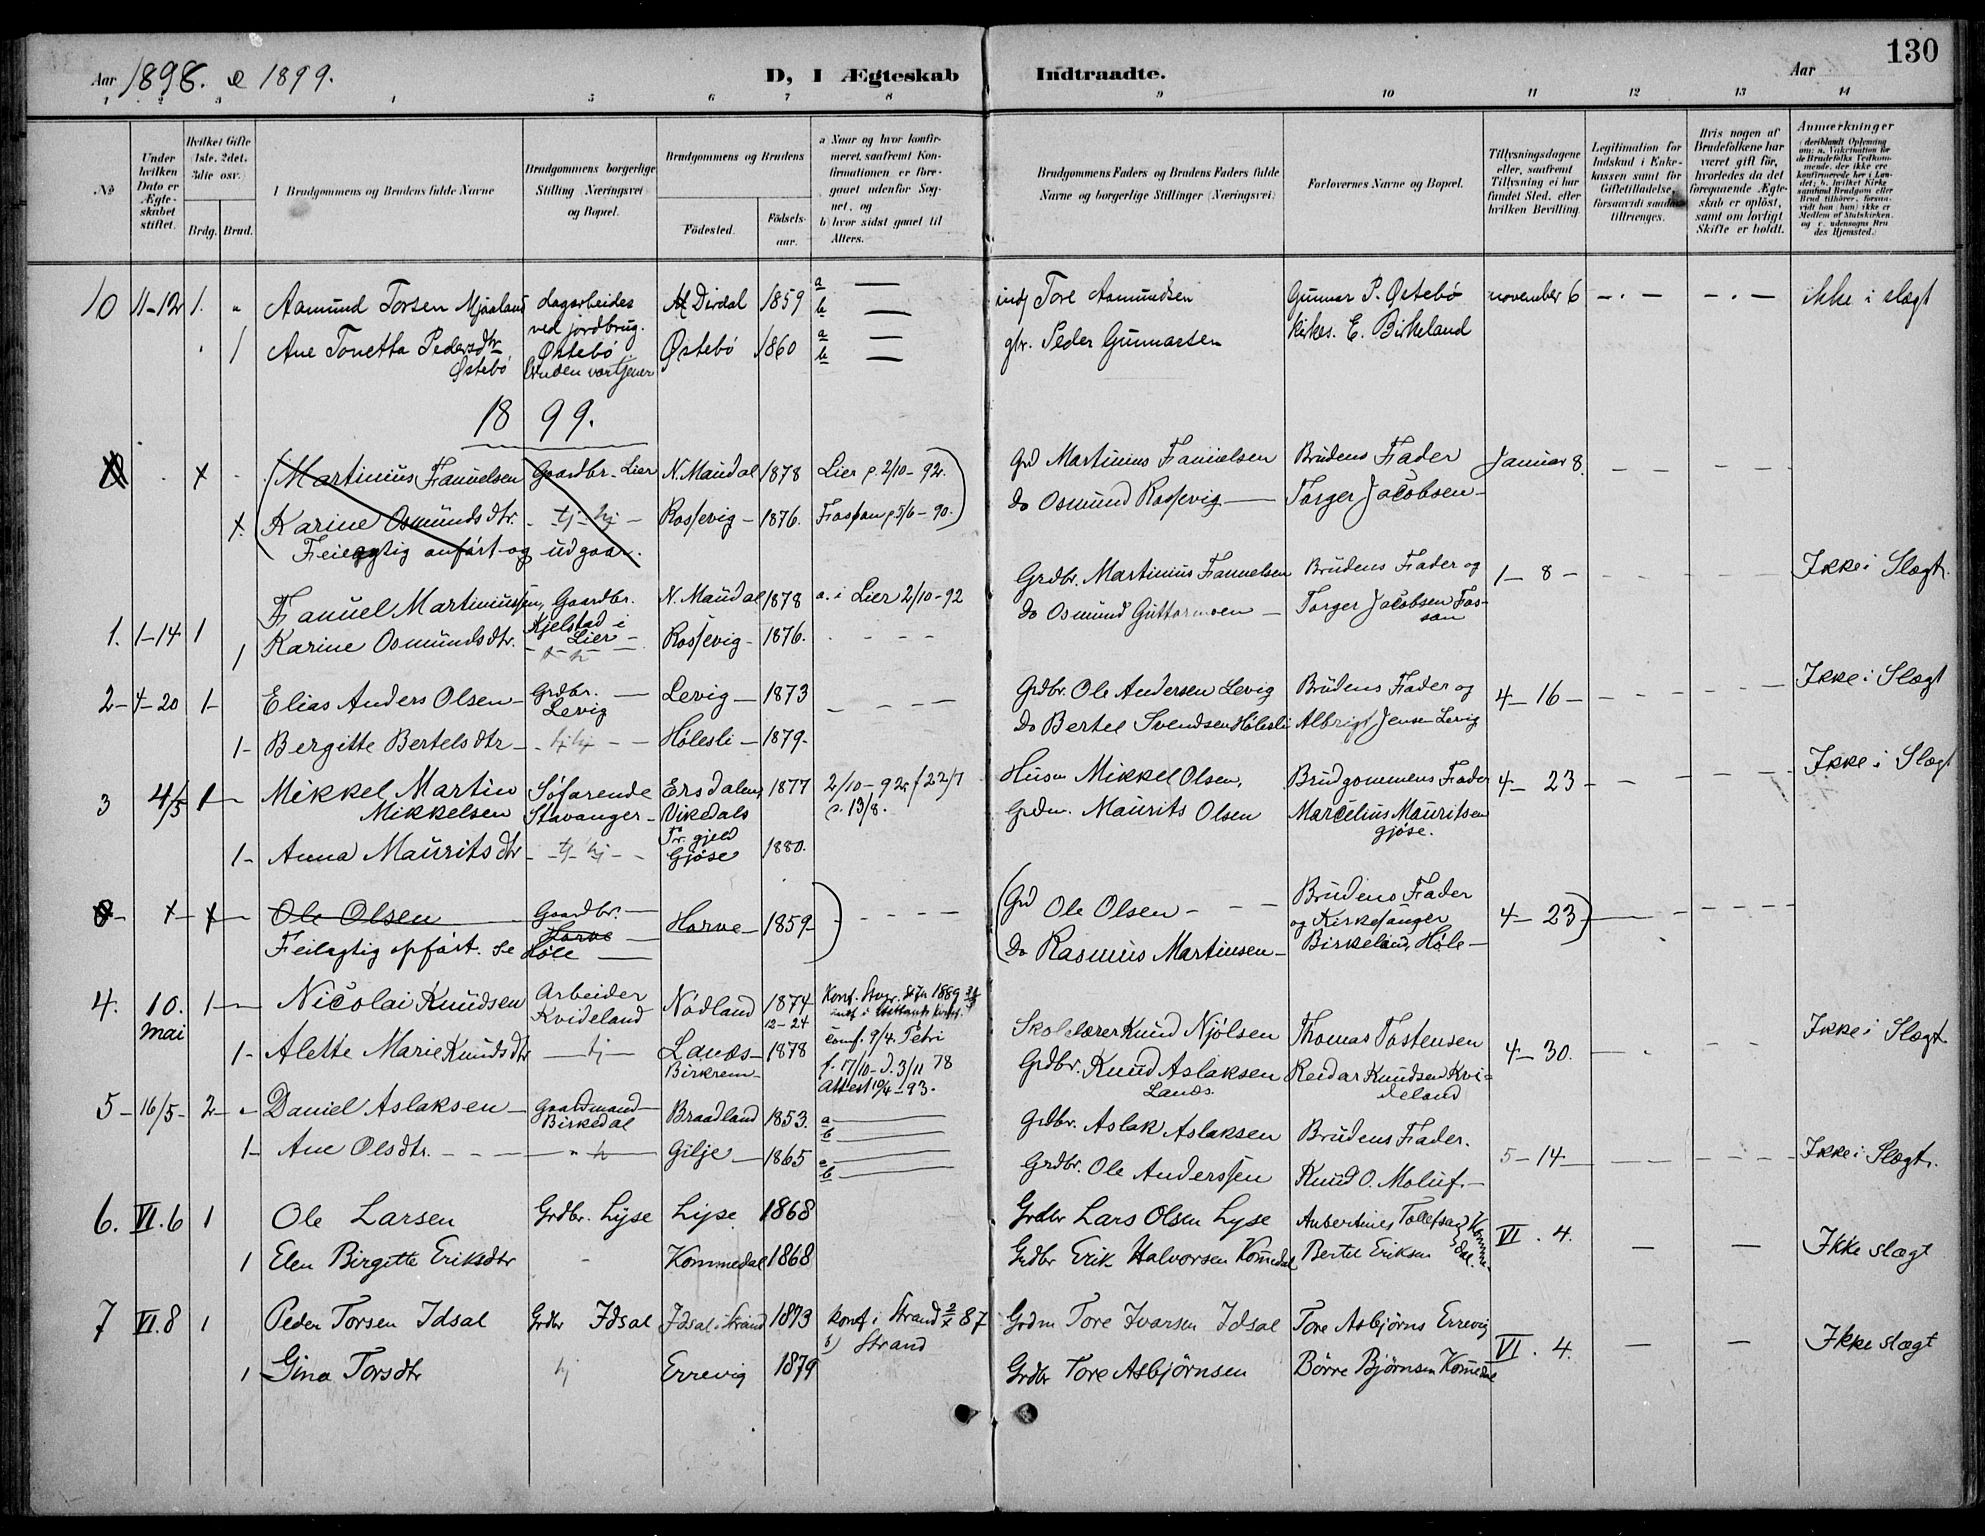 Aar 1898. & 1899. D, I Ægteskab Indtraadte. Aar 130
1 2 3 4 5 6 7 8 9 10 11 12 13 14
№
Under hvilken Dato er Ægteskabet stiftet.
Hvilket Gifte (1ste, 2det, 3die osv.)
Brdg. Brud.
I Brudgommens og Brudens fulde Navne
Brudgommens borgerlige Stilling (Næringsvei) og Bopæl.
Brudgommens og Brudens
Födested.
Födselsaar.
a Naar og hvor konfirmeret, saafremt Konfirmationen er foregaaet udenfor Sognet, og
b) hvor sidst gaaet til Alters.
Brudgommens Faders og Brudens Faders fulde Navne og borgerlige Stillinger (Næringsvei)
Forlovernes Navne og Bopæl.
Tillysningsdagene eller, saafremt Tillysning ei har fundet Sted, efter hvilken Bevilling.
Legitimation for Indskud i Enkekassen samt for Giftetilladelse, forsaavidt saadan tiltrænges.
Hvis nogen af Brudefolkene har været gift för, hvorledes da det foregaaende Ægteskab er oplöst, samt om lovligt Skifte er holdt.
Anmærkninger (deriblandt Oplysning om: a. Vakcination for de Brudefolks Vedkommende, der ikke ere konfirmerede her i Landet; b. hvilket Kirkesamfund Brudgom eller Brud tilhörer, forsaavidt han (hun) ikke er Medlem af Statskirken, og c. udensogns Brudes Hjemsted.)
10 11-12 1. " Aamund Torsen Mjaaland dagarbeider Dirdal 1859 a — indj Tore Aamundsen Gunnar P. Østebö november 6 — . — — . — ikke i slægt
ved jordbrug. b —
1 Ane Tonetta Pedersdtr Østebö Østebö 1860 a — gbr. Peder Gunnarsen kirkes. E. Birkeland
Østebö Bruden var tjener b —
1899.
(Martinius Fanuelsen Gaardbr. Lier N. Maudal 1878 Lier p. 2/10-92. Grd Martinius Fanuelsen Brudens Fader Januar 8.
Karine Osmundsdtr. - tj - hj - Rossevig - 1876. Fossan p 5/6 - 90.) do Osmund Rossevig — Torger Jacobsen -
Feilagtig anført og udgaar.
Fanuel Martiniussen, Gaardbr. N. Maudal 1878 a. i Lier 2/10-92 Grdbr. Martinius Fanuelsen Brudens Fader og 1 - 8 - Ikke i Slægt.
1. 1-14 1 Kjelstad i Lier - do Osmund Guttormsen — Torger Jacobsen Fossan
1 Karine Osmundsdtr. Rossevig - 1876.
2 - 4-20 1 - Elias Anders Olsen - Grdbr. Levig Levig - 1873 Grdbr. Ole Andersen Levig Brudens Fader og 4 - 16 - Ikke i Slægt
1 - Bergitte Bertelsdtr - - hj - - Hølesli - 1879 - do Bertel Svendsen Hølesli Albrigt Jensen Levig
3 4/5 1 - Mikkel Martin Mikkelsen Søfarende Stavanger - Ersdalen, Vikedals Pr. gjeld 1877 2/10-92 f 22/7 p. 13/8. Husm Mikkel Olsen, Brudgommens Fader 4 - 23 - Ikke i Slægt
1 - Anna Mauritsdtr - tj hj - - Gjøse 1880. Grdm. Maurits Olsen Marcelius Mauritsen gjøse.
Ole Olsen Gaardbr. — Horve Horve - 1859 -) (Grd Ole Olsen - - - Brudens Fader og Kirkesanger 4 - 23)
Feilagtig opført. Se Høle — do Rasmus Martinsen - Birkeland, Høle -
4. 10. mai 1 - Nicolai Knudsen Arbeider Kvideland Nødland 1874 12-24 Skolelærer Knud Njølsen Thomas Tostensen 4 - 30. Ikke i Slægt
1 - Alette Marie Knudsdtr - hj - Lands - Birkrem - 1878 conf. 9/4. Petri f. 17/10 - d. 3/11 78 Attest 19/4 - 93. Grdbr. Knud Aslaksen Lands. Reidar Knudsen Kvideland
5 - 16/5 - 2 - Daniel Aslaksen - Gaardmand Birkedal Braadland 1853. a — b — Grdbr. Aslak Aslaksen Brudens Fader. 5 - 14 - Ikke i Slægt.
1 - Ane Olsdtr. - - - Gilje - 1865 a — b — Grdbr. Ole Anderssen Knud O. Moluf. -
6. VI. 6 1 Ole Larsen Grdbr. Lyse Lyse 1868 Grdbr Lars Olsen Lyse Aubertines Tollefsen Kommedal. VI . 4. — — Ikke slægt
1 Elen Birgitte Eriksdtr - Kommedal 1868 Grdbr Erik Halvorsen Komedal Bertel Eriksen
7 VI. 8 1 Peder Torsen Idsal Grdbr Idsal Idsal i Strand 1873 konf i Strand 2/x 87 Grdm Tore Ivarsen Idsal Tore Asbjørns Errevig VI . 4. — — Ikke slægt
b) Strand
1 Gina Torsdtr hj Errevig 1879 Grdbr Tore Asbjørnsen Börre Bjørnsen Komedal